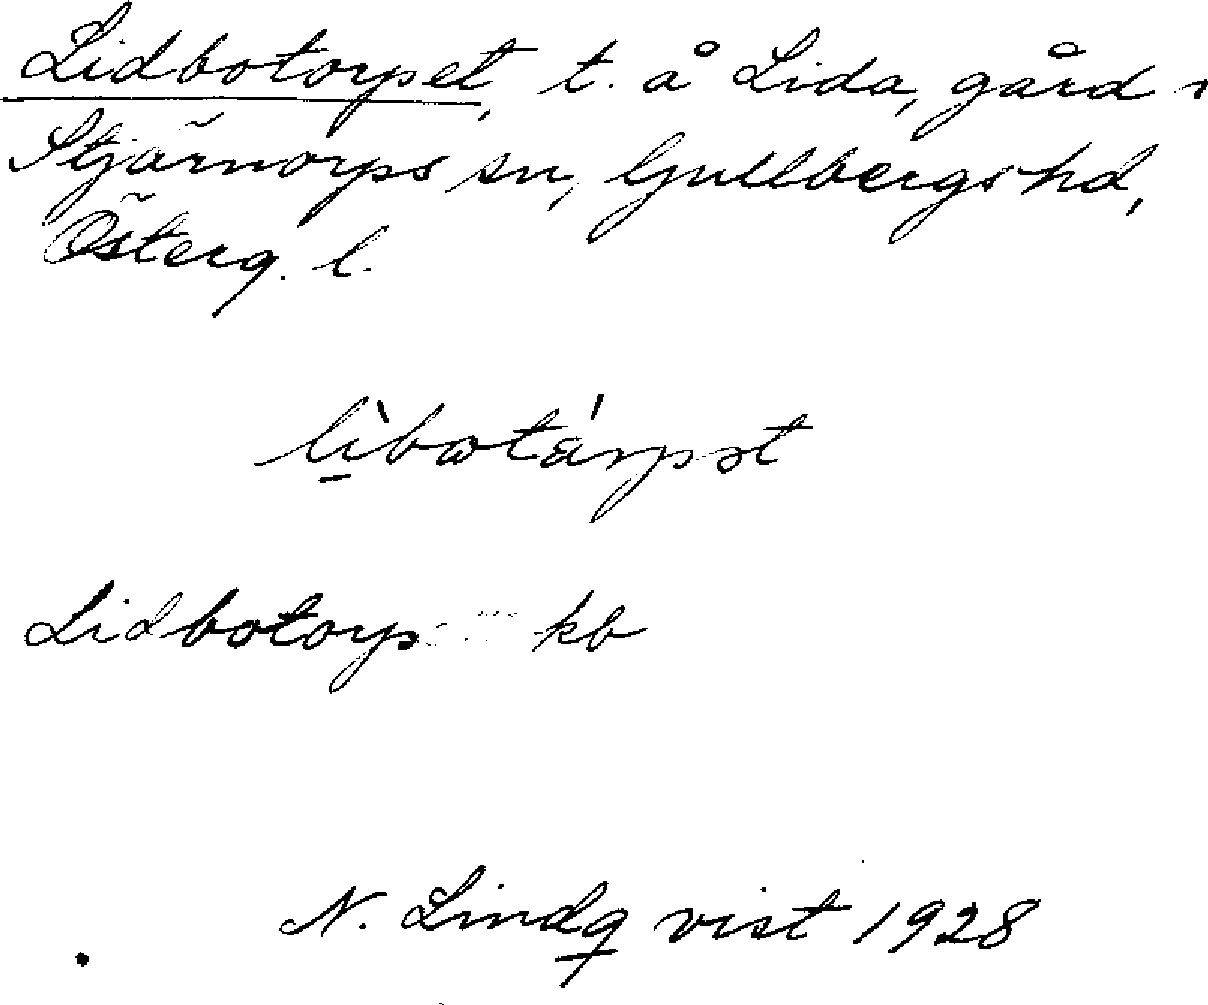 Lidbotorpet, t. å Lida, gård i
Stjärnorps sn, Gullbergs hd,
Österg. l.
lìbotárpət
Lidbotorp kb
N. Lindqvist 1928